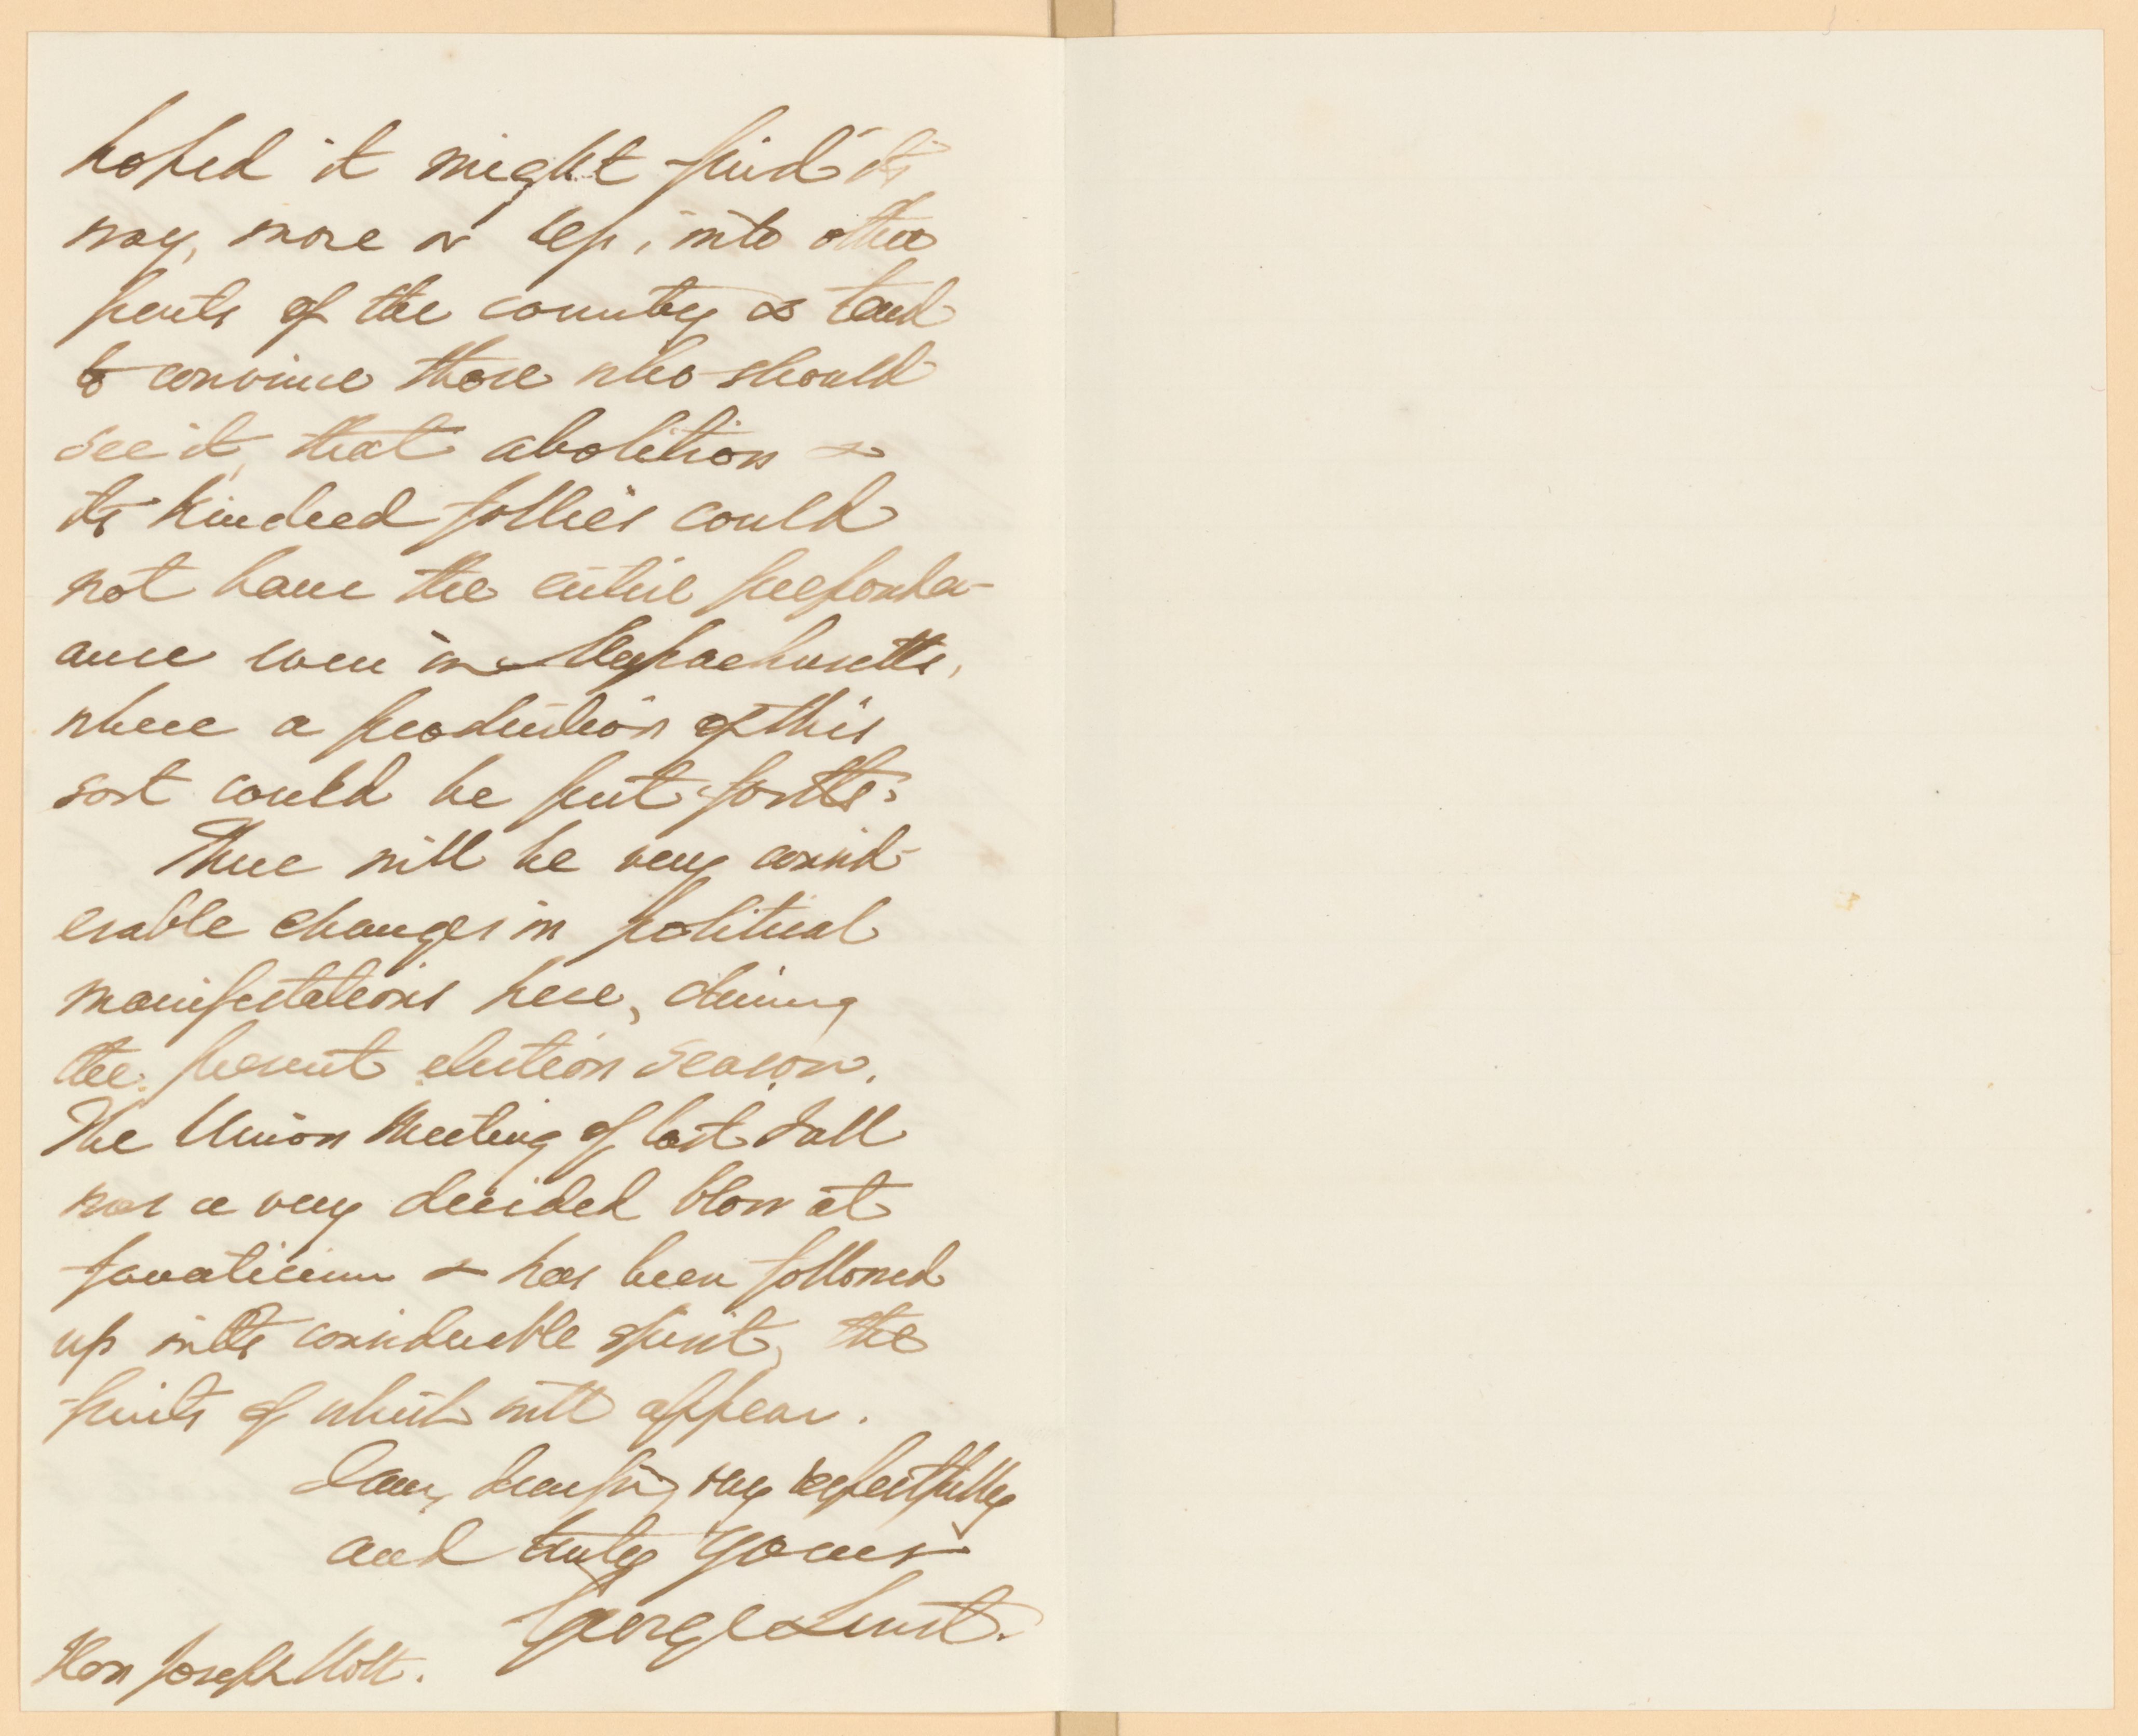 hoped it might find its
way, more or less, into other
parts of the country & tend
to convince those who should
see it, that abolition &
its kindred follies could
not have the entire preponder-
ance even in Massachusetts,
where a production of this
sort could be put forth.
There will be very consid-
erable changes in political
manifestations here, during
the present election season.
The Union Meeting of last Fall
was a very decided blow at
fanaticism & has been followed
up with considerable spirit, the
fruits of which will appear.
I am, dear sir, very respectfully
and truly yours
George Lunt.
Hon Joseph Holt.